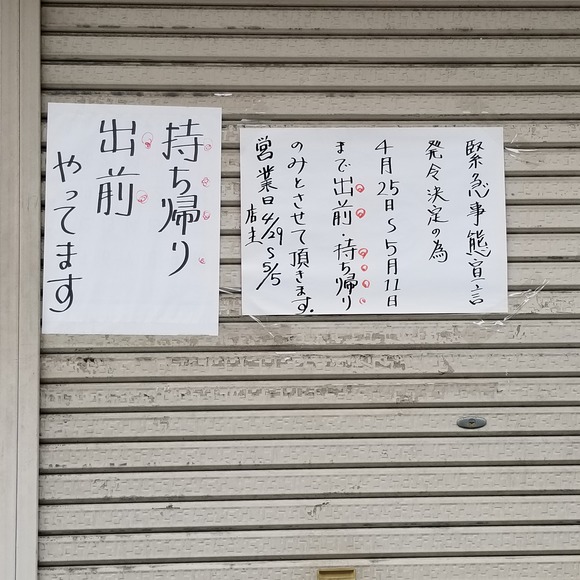 緊急事態宣言
発令決定の為
4月25日〜5月11日
まで出前・持ち帰り
のみとさせて頂きます.
営業日4/29〜5/5
店主
持ち帰り
出前
やってます